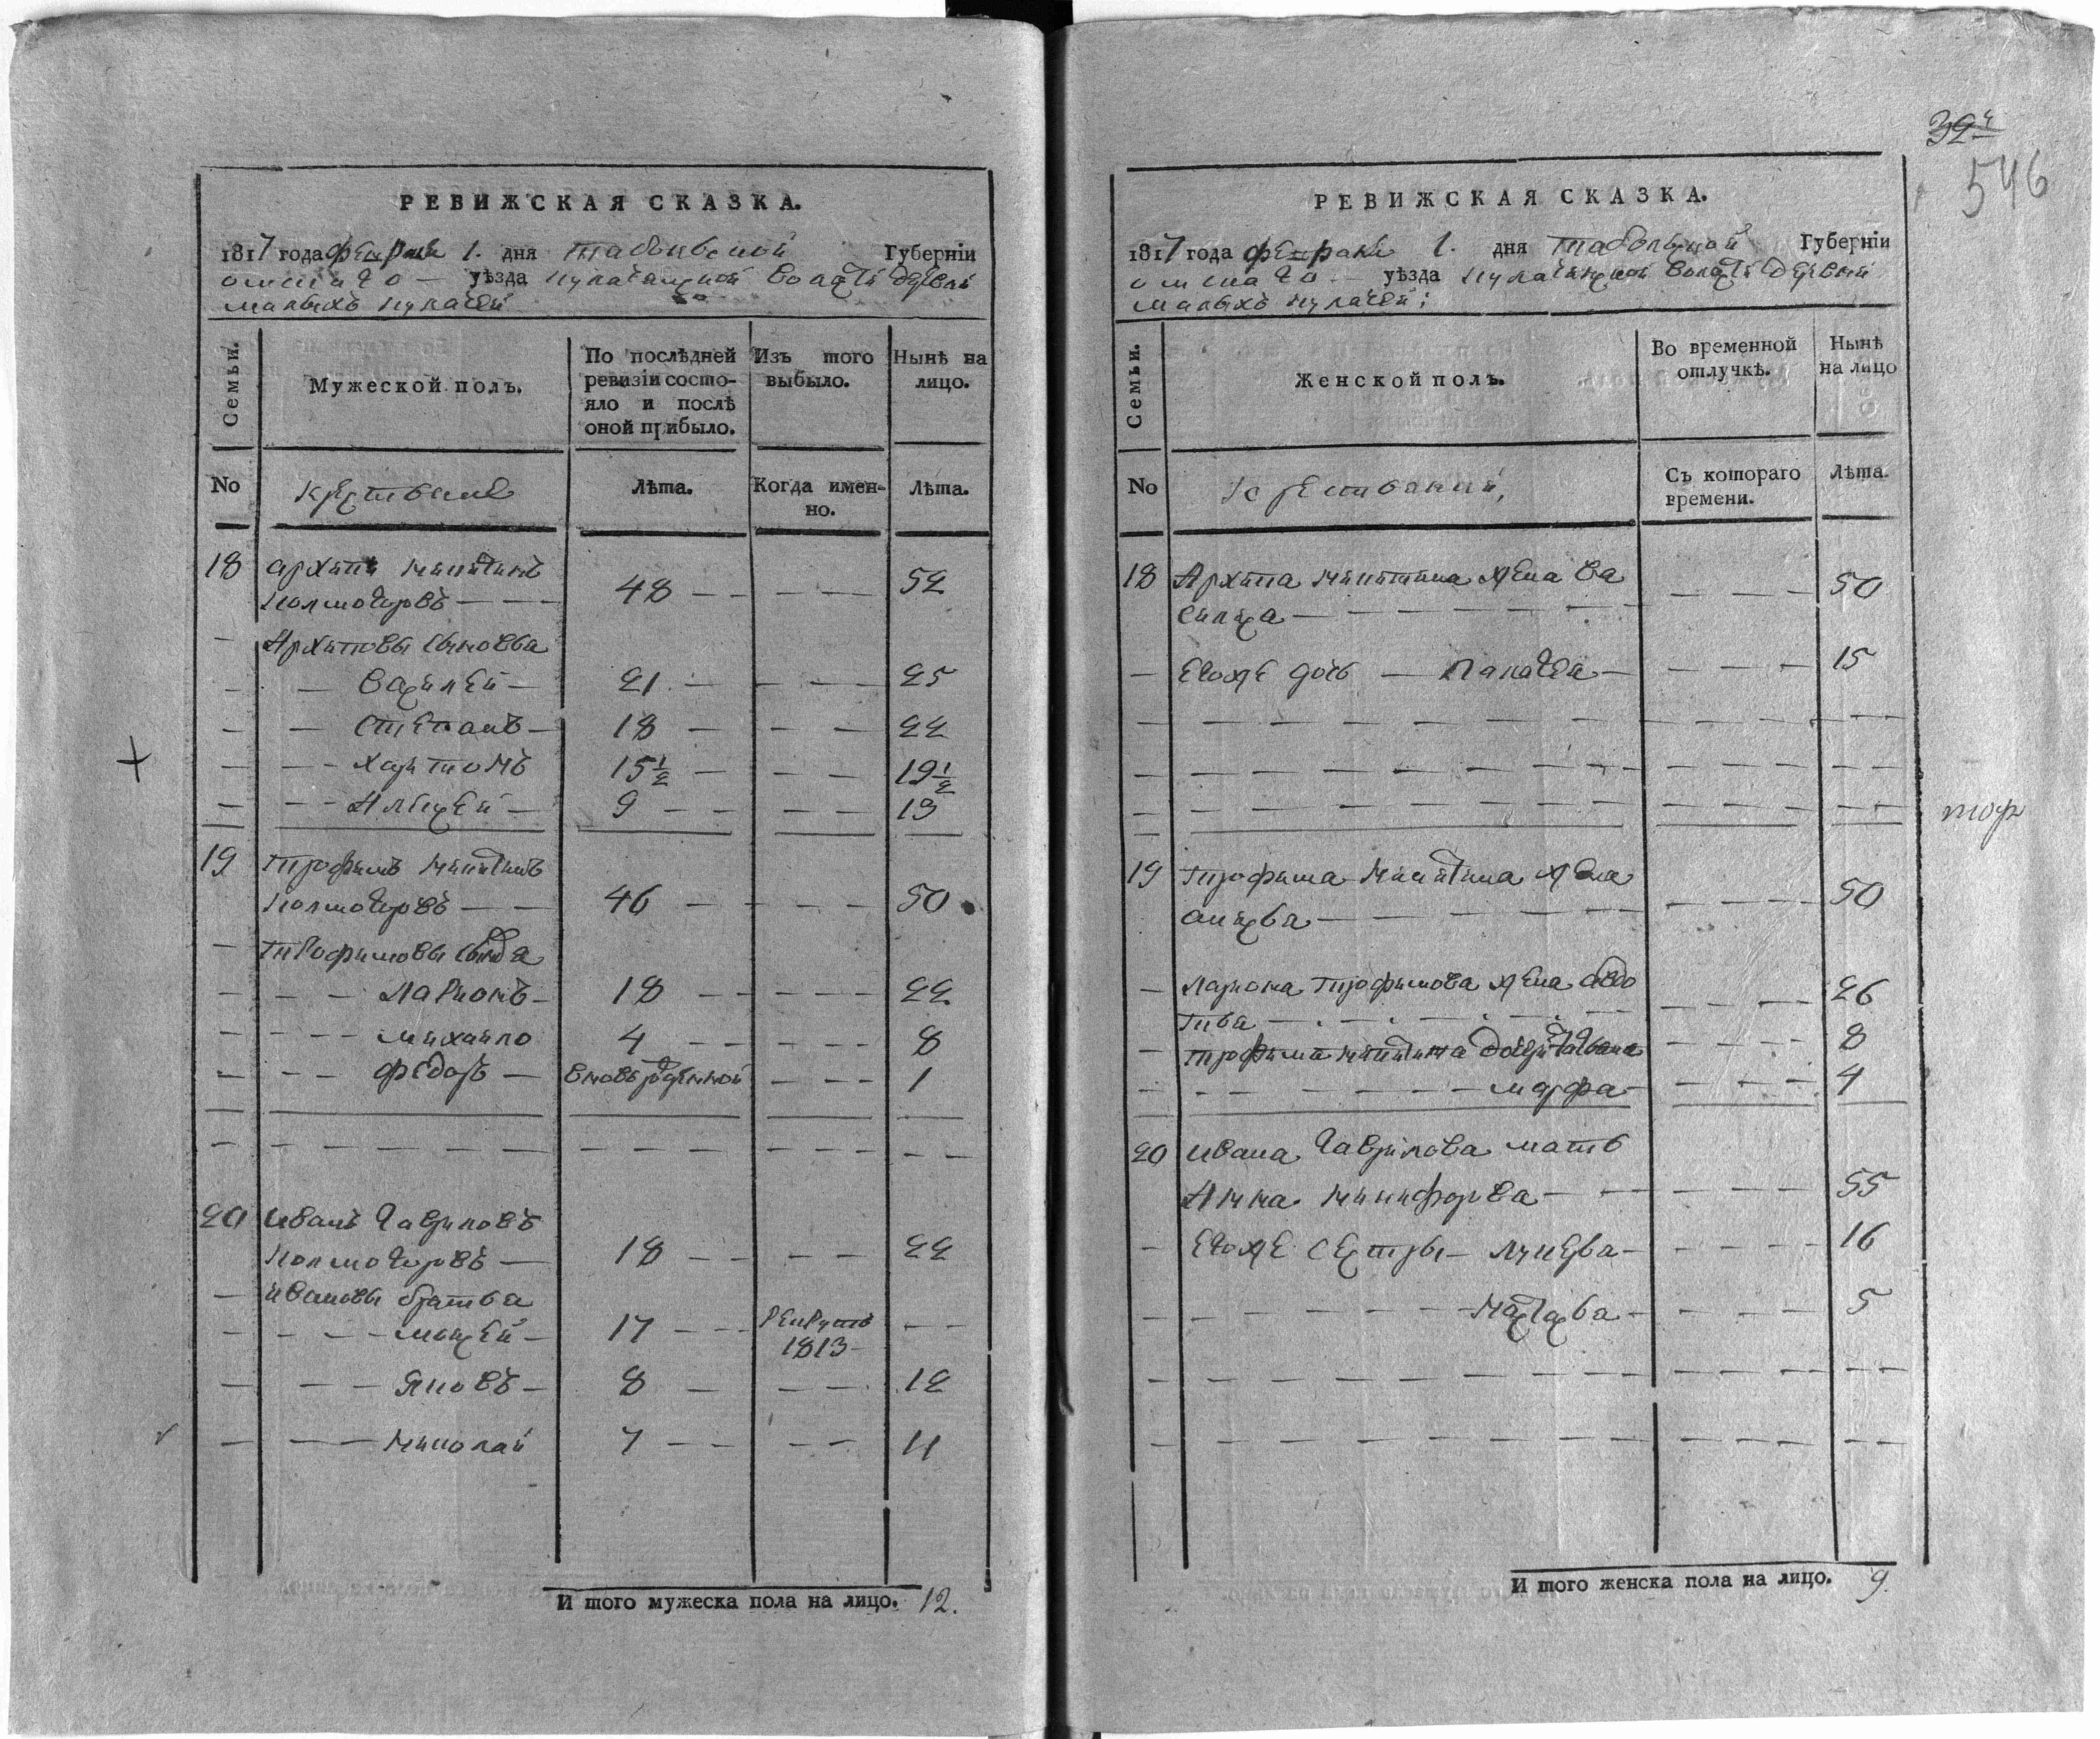 32ч
546
РЕВИЖСКАЯ СКАЗКА.
1817 года февраля 1. дня Тобольской Губерніи
омскаго уѣзда кулачинской воласти деревни
малыхъ кулачей
Семьи.
Мужеской полъ.
По послѣдней ревизіи состояло и послѣ оной прибыло.
Изъ того выбыло.
Нынѣ на лицо.
No
крестьяне
Лѣта.
Когда именно.
Лѣта.
18 архипъ никитинъ
калмогоровъ — — — 48 — — — — — 52
— Архиповы сыновья
— — Василей — 21 — — — — 25
— — Степанъ — 18 — — — 22
— — — Харитонъ 15 1/2 — — — 19 1/2
— — — Алексей — 9 — — — — 13
19 трофимъ никитинъ
калмогоровъ — — 46 — — — — 50
— Трофимовы сыновья
— — — Ларионъ — 18 — — — — — 22
— — — — михайло 4 — — — — — 8
— — — федоръ — вновь рожденной — — — 1
20 иванъ гавриловъ
калмогоровъ — 18 — — — — 22
— ивановы братья
— — — — мосей — 17 — — рекрутъ — —
1813
— — — яковъ — 8 — — — — 12
— — — николай 7 — — — — 11
И того мужеска пола на лицо. 12.
РЕВИЖСКАЯ СКАЗКА.
1817 года февраля 1. дня Тобольской Губерніи
омскаго уѣзда кулачинской воласти деревни
малыхъ кулачей;
Семьи.
Женской полъ.
Во временной отлучкѣ.
Нынѣ на лицо
No
Съ котораго времени.
Лѣта.
18 Архипа никитина жена Ва
силиса — — — — — — — — — 50
— Егоже дочь — Палагея — — — — 15
тоф
19 трофима никитина жена
анисья — — — — — — — — — 50
— Лариона трофимова жена авдо
тья — — — — — — — — — 26
— трофима никитина дочери татьяна — — — — 8
— — — — — — — марфа — — — — 4
20 ивана гаврилова мать
Анна никифорова — — — — — 55
— Егоже сестры — лукерья — — — — — 16
— — — — — — — настасья — — — — 5
И того женска пола на лицо. 9.